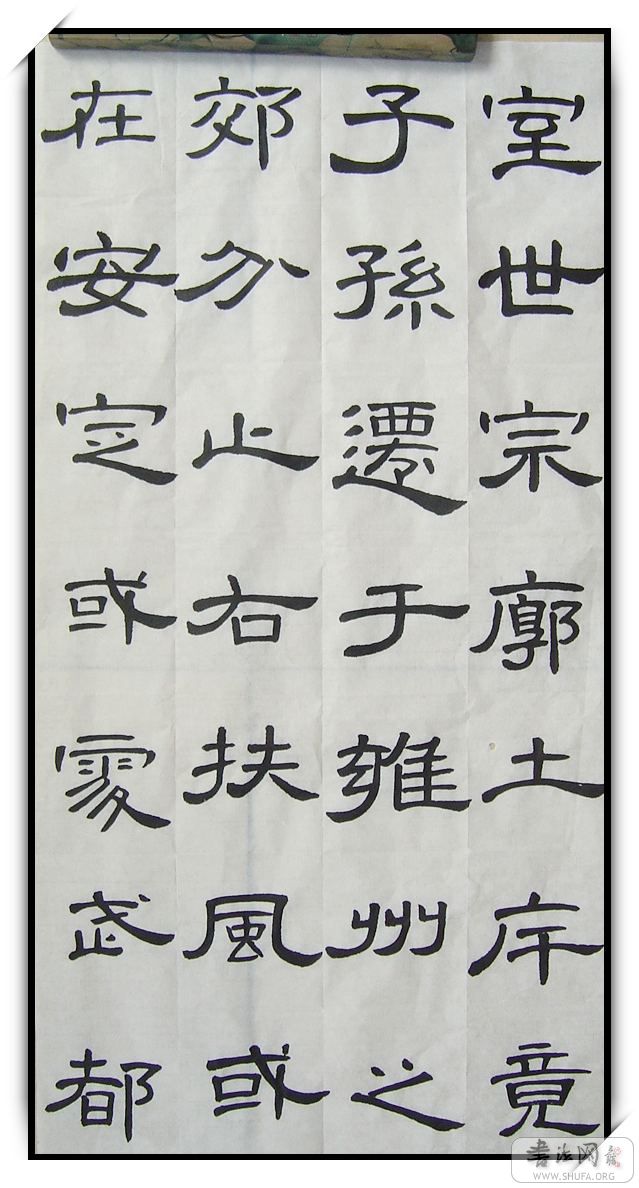 室世宗廓土斥竟
子孫遷于雍州之
郊分止右扶風或
在安定或處武都
書法网
WWW.SHUFA.ORG